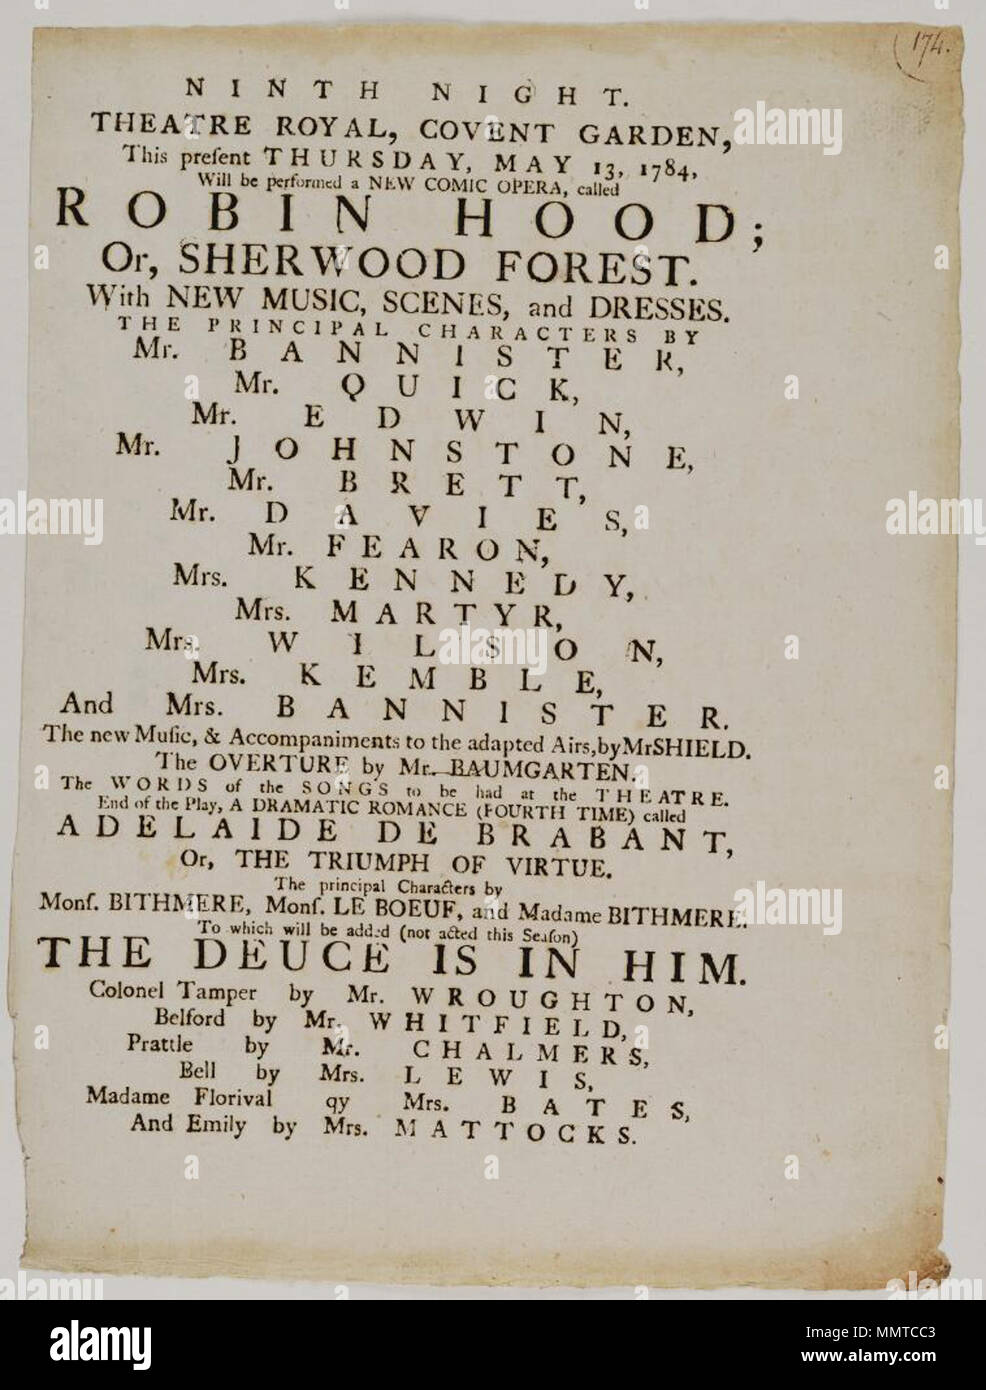 174.
NINTH NIGHT.
THEATRE ROYAL, COVENT GARDEN,
This preſent THURSDAY, MAY 13, 1784,
Will be performed a NEW COMIC OPERA, called
ROBIN HOOD;
Or, SHERWOOD FOREST.
With NEW MUSIC, SCENES, and DRESSES.
THE PRINCIPAL CHARACTERS BY
Mr. BANNISTER,
Mr. QUICK,
Mr. EDWIN,
Mr. JOHNSTONE,
Mr. BRETT,
Mr. DAVIES,
Mr. FEARON,
Mrs. KENNEDY,
Mrs. MARTYR,
Mrs. WILSON,
Mrs. KEMBLE,
And Mrs. BANNISTER.
The new Muſic, & Accompaniments to the adapted Airs, by Mr SHIELD.
The OVERTURE by Mr. BAUMGARTEN.
The WORDS of the SONGS to be had at the THEATRE.
End of the Play, A DRAMATIC ROMANCE (FOURTH TIME) called
ADELAIDE DE BRABANT,
Or, THE TRIUMPH OF VIRTUE.
The principal Characters by
Monſ. BITHMERE, Monſ. LE BOEUF, and Madame BITHMERE.
To which will be added (not acted this Seaſon)
THE DEUCE IS IN HIM.
Colonel Tamper by Mr. WROUGHTON,
Belford by Mr. WHITFIELD,
Prattle by Mr. CHALMERS,
Bell by Mrs. LEWIS,
Madame Florival qy Mrs. BATES,
And Emily by Mrs. MATTOCKS.
alamy
Image ID: MMTCC3
www.alamy.com